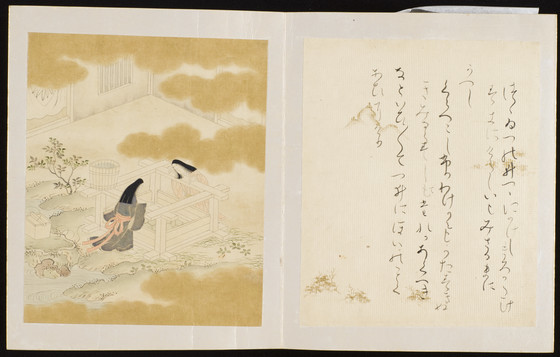 つゝゐつの井つゝにかけしまろかたけ
すきにけらしないもみさるまに
かへし
くらへこしふりわけかみもかたすきぬ
きみならすしてたれかあくへき
なといひ〳〵てつ井にほいのことく
あひにけり